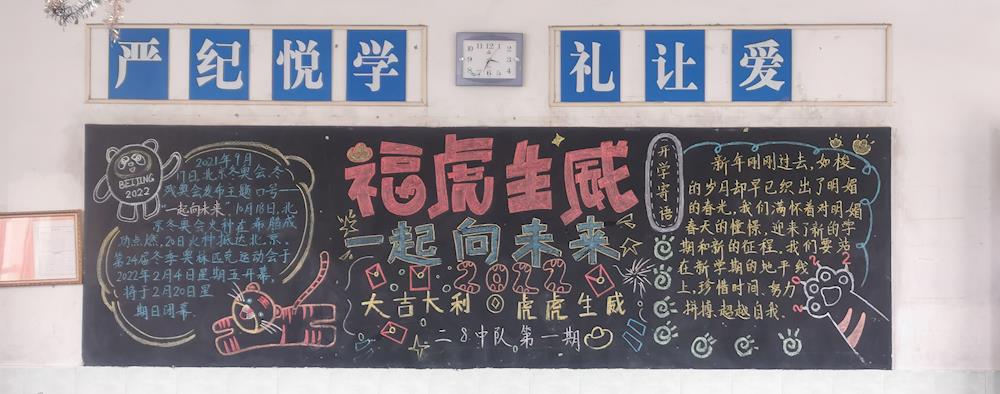 严纪悦学
礼让爱
BEIJING
2022
2021年9月
17日,北京冬奥会、冬
残奥会发布主题口号——
“一起向未来”10月18日,北
京冬奥会火种在希腊成
功点燃,20日火种抵达北京。
第24届冬季奥林匹克运动会于
2022年2月4日星期五开幕,
将于2月20日星
期日闭幕.
福虎生威
一起向未来
2022
大吉大利
虎虎生威
二8中队第一期
开学寄语
新年刚刚过去,如梭
的岁月却早已织出了明媚
的春光,我们满怀着对明媚
春天的憧憬,迎来了新的学
期和新的征程.我们要站
在新学期的地平线
上,珍惜时间、努力
拼搏、超越自我.
2022